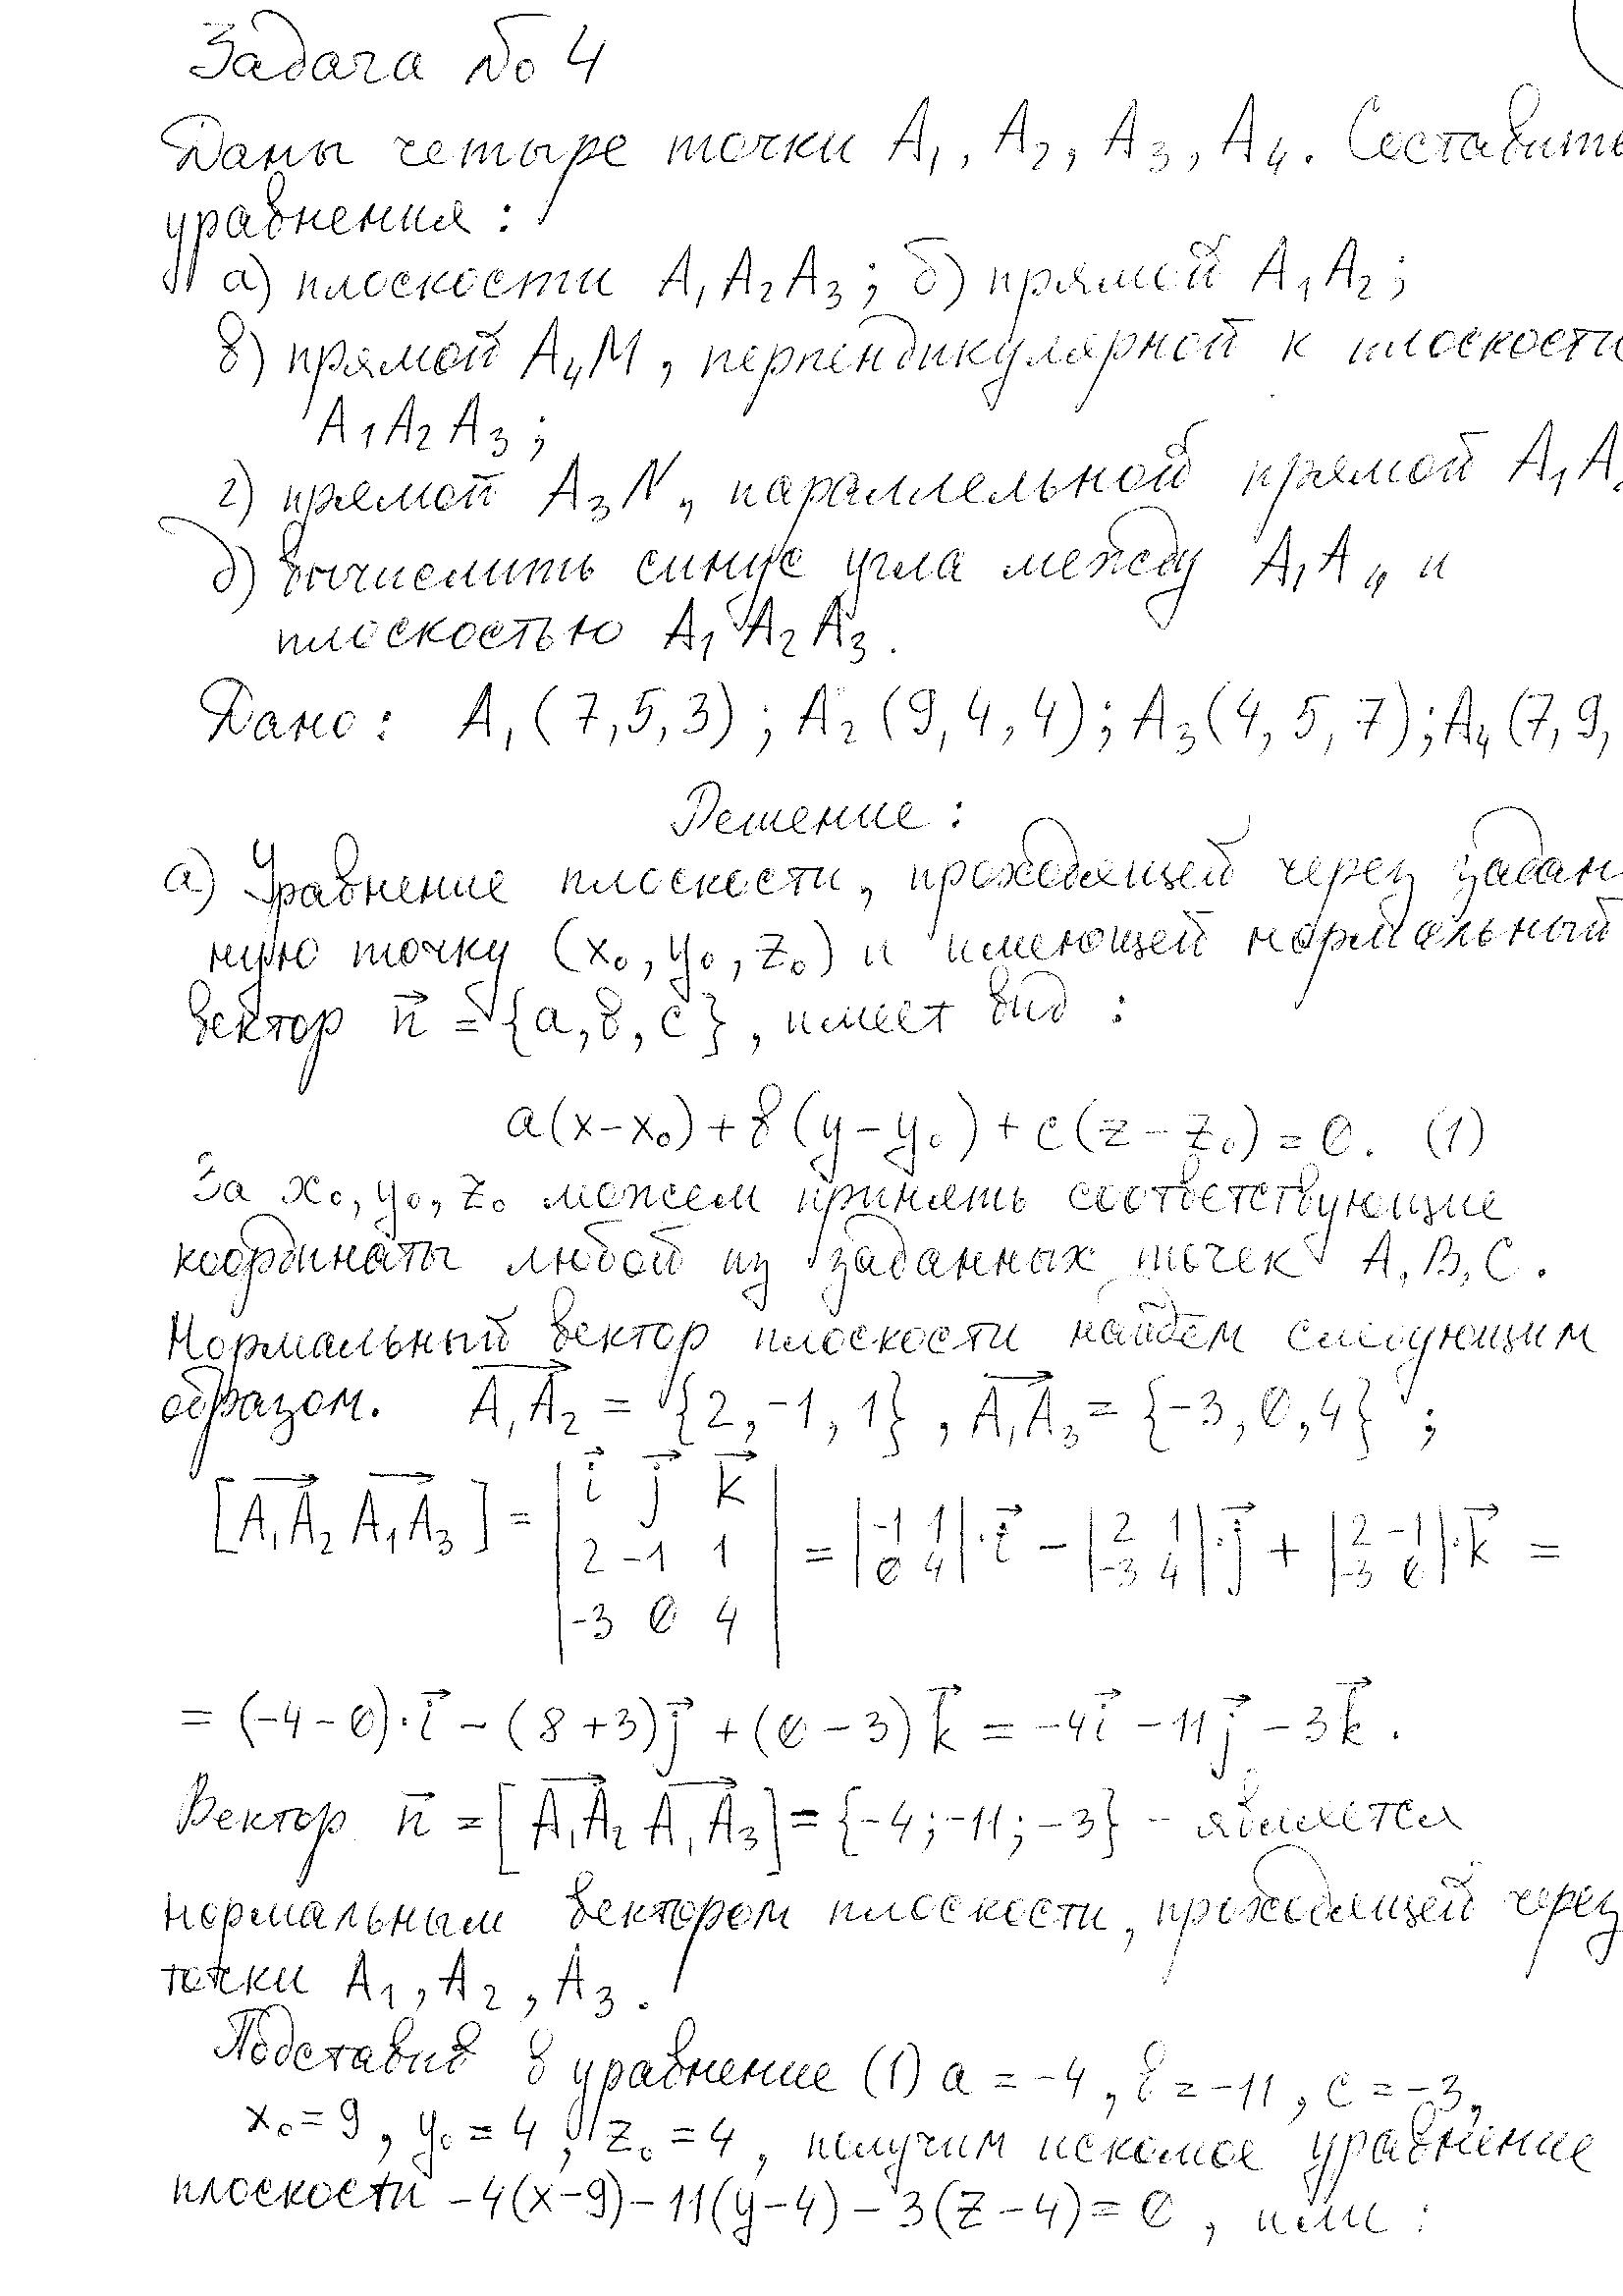 Задача № 4
Даны четыре точки A₁, A₂, A₃, A₄. Составить
уравнения:
а) плоскости A₁A₂A₃; б) прямой A₁A₂;
в) прямой A₄M, перпендикулярной к плоскости
A₁A₂A₃;
г) прямой A₃N, параллельной прямой A₁A
д) вычислить синус угла между A₁A₄ и
плоскостью A₁A₂A₃.
Дано: A₁(7,5,3); A₂(9,4,4); A₃(4,5,7); A₄(7,9,
Решение:
а) Уравнение плоскости, проходящей через задан
ную точку (x₀, y₀, z₀) и имеющей нормальный
вектор n⃗ = {a, в, c}, имеет вид:
a(x-x₀)+в(y-y₀)+c(z-z₀)=0. (1)
За x₀, y₀, z₀ можем принять соответствующие
координаты любой из заданных точек A, B, C.
Нормальный вектор плоскости найдём следующим
образом. A₁A₂ = {2,-1,1}, A₁A₃ = {-3,0,4};
[A₁A₂ A₁A₃] = |i⃗ j⃗ k⃗; 2 -1 1; -3 0 4| = |-1 1; 0 4|·i⃗ - |2 1; -3 4|·j⃗ + |2 -1; -3 0|·k⃗ =
= (-4-0)·i⃗ - (8+3)j⃗ + (0-3)k⃗ = -4i⃗ - 11j⃗ - 3k⃗.
Вектор n⃗ = [A₁A₂ A₁A₃] = {-4;-11;-3} - является
нормальным вектором плоскости, проходящей через
точки A₁, A₂, A₃.
Подставив в уравнение (1) a = -4, в = -11, c = -3,
x₀ = 9, y₀ = 4, z₀ = 4, получим искомое уравнение
плоскости -4(x-9)-11(y-4)-3(z-4)=0, или: